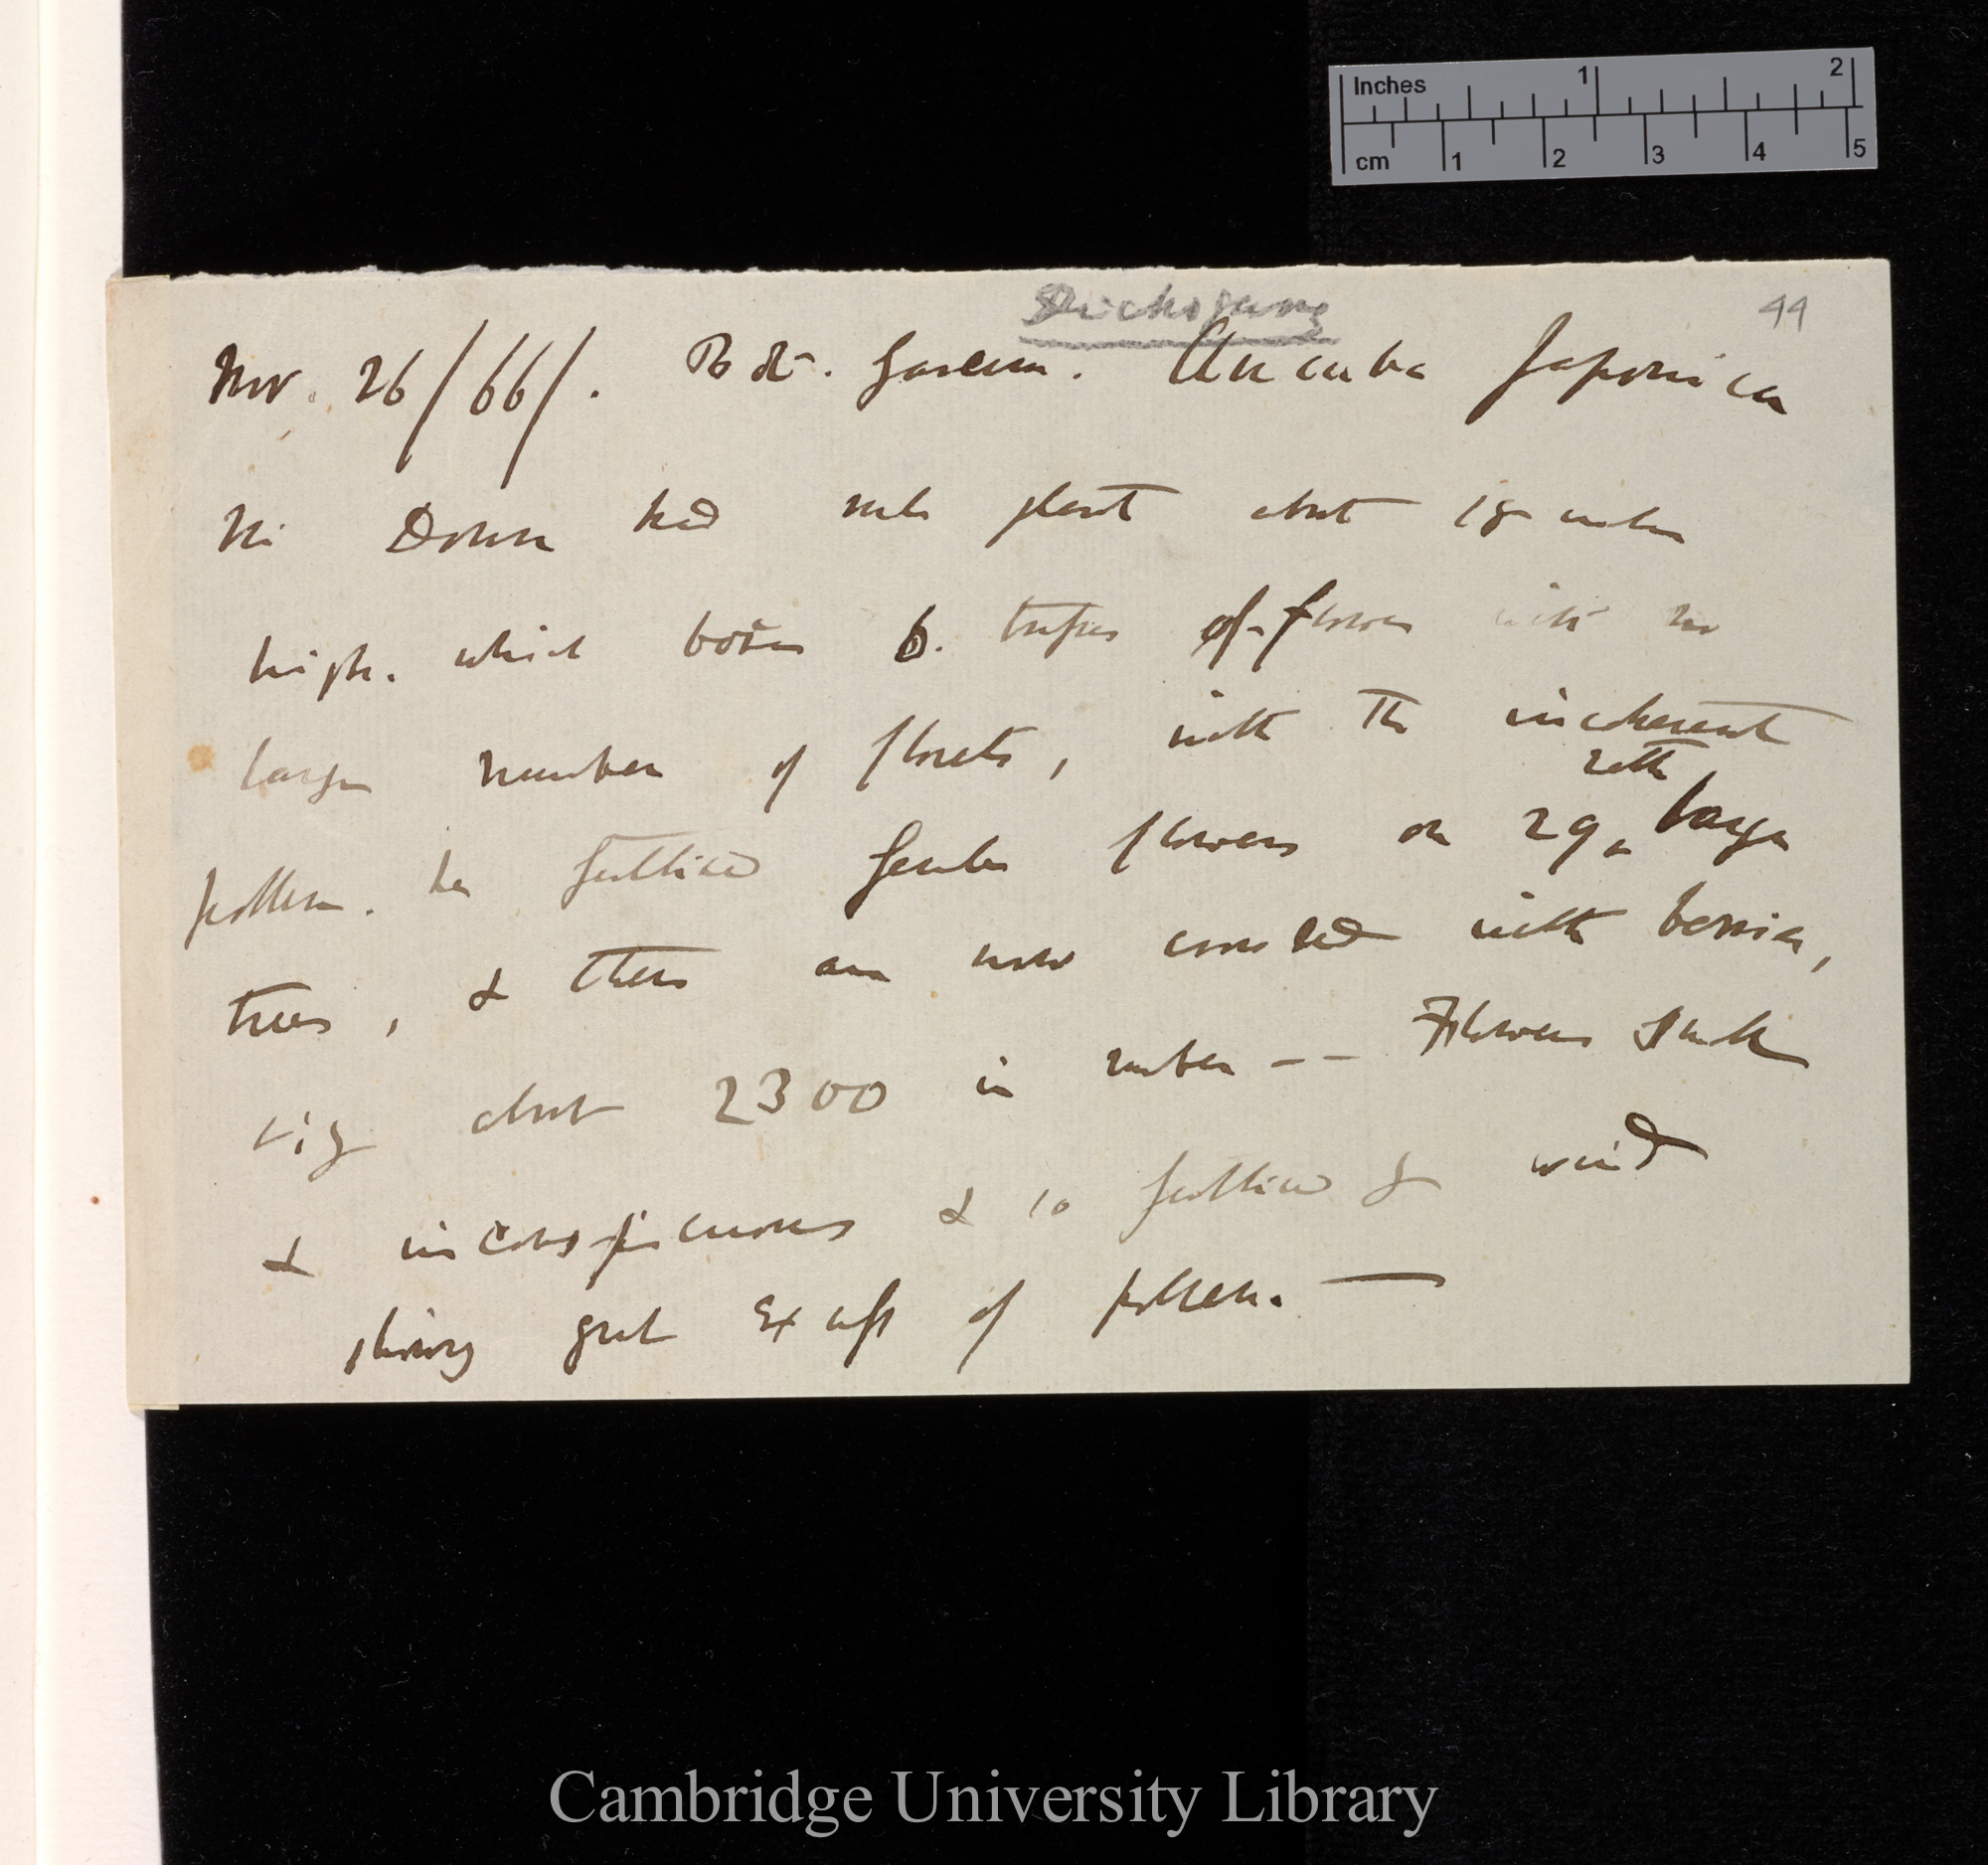 Inches 1 2
cm 1 2 3 4 5
Dichogamy
44
Nov. 26/66/. Bot. Garden. Aucuba Japonica
Mr Down had male plant about 18 inches
high. which bore 6. tufts of flowers with no
large number of florets, with the incoherent
pollen. he fertilised female flowers on 29 rather large
trees, & these are now covered with berries,
viz about 2300 in number -- Flowers small
& inconspicuous & so fertilised by wind
showing great excess of pollen. —
Cambridge University Library